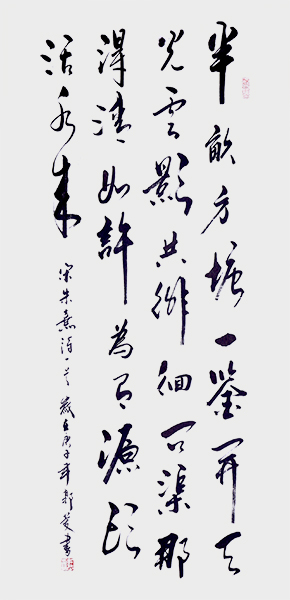 半畝方塘一鑒開天
光雲影共徘徊問渠那
得清如許為有源頭
活水来
宋朱熹詩一首 歲在庚子年 書